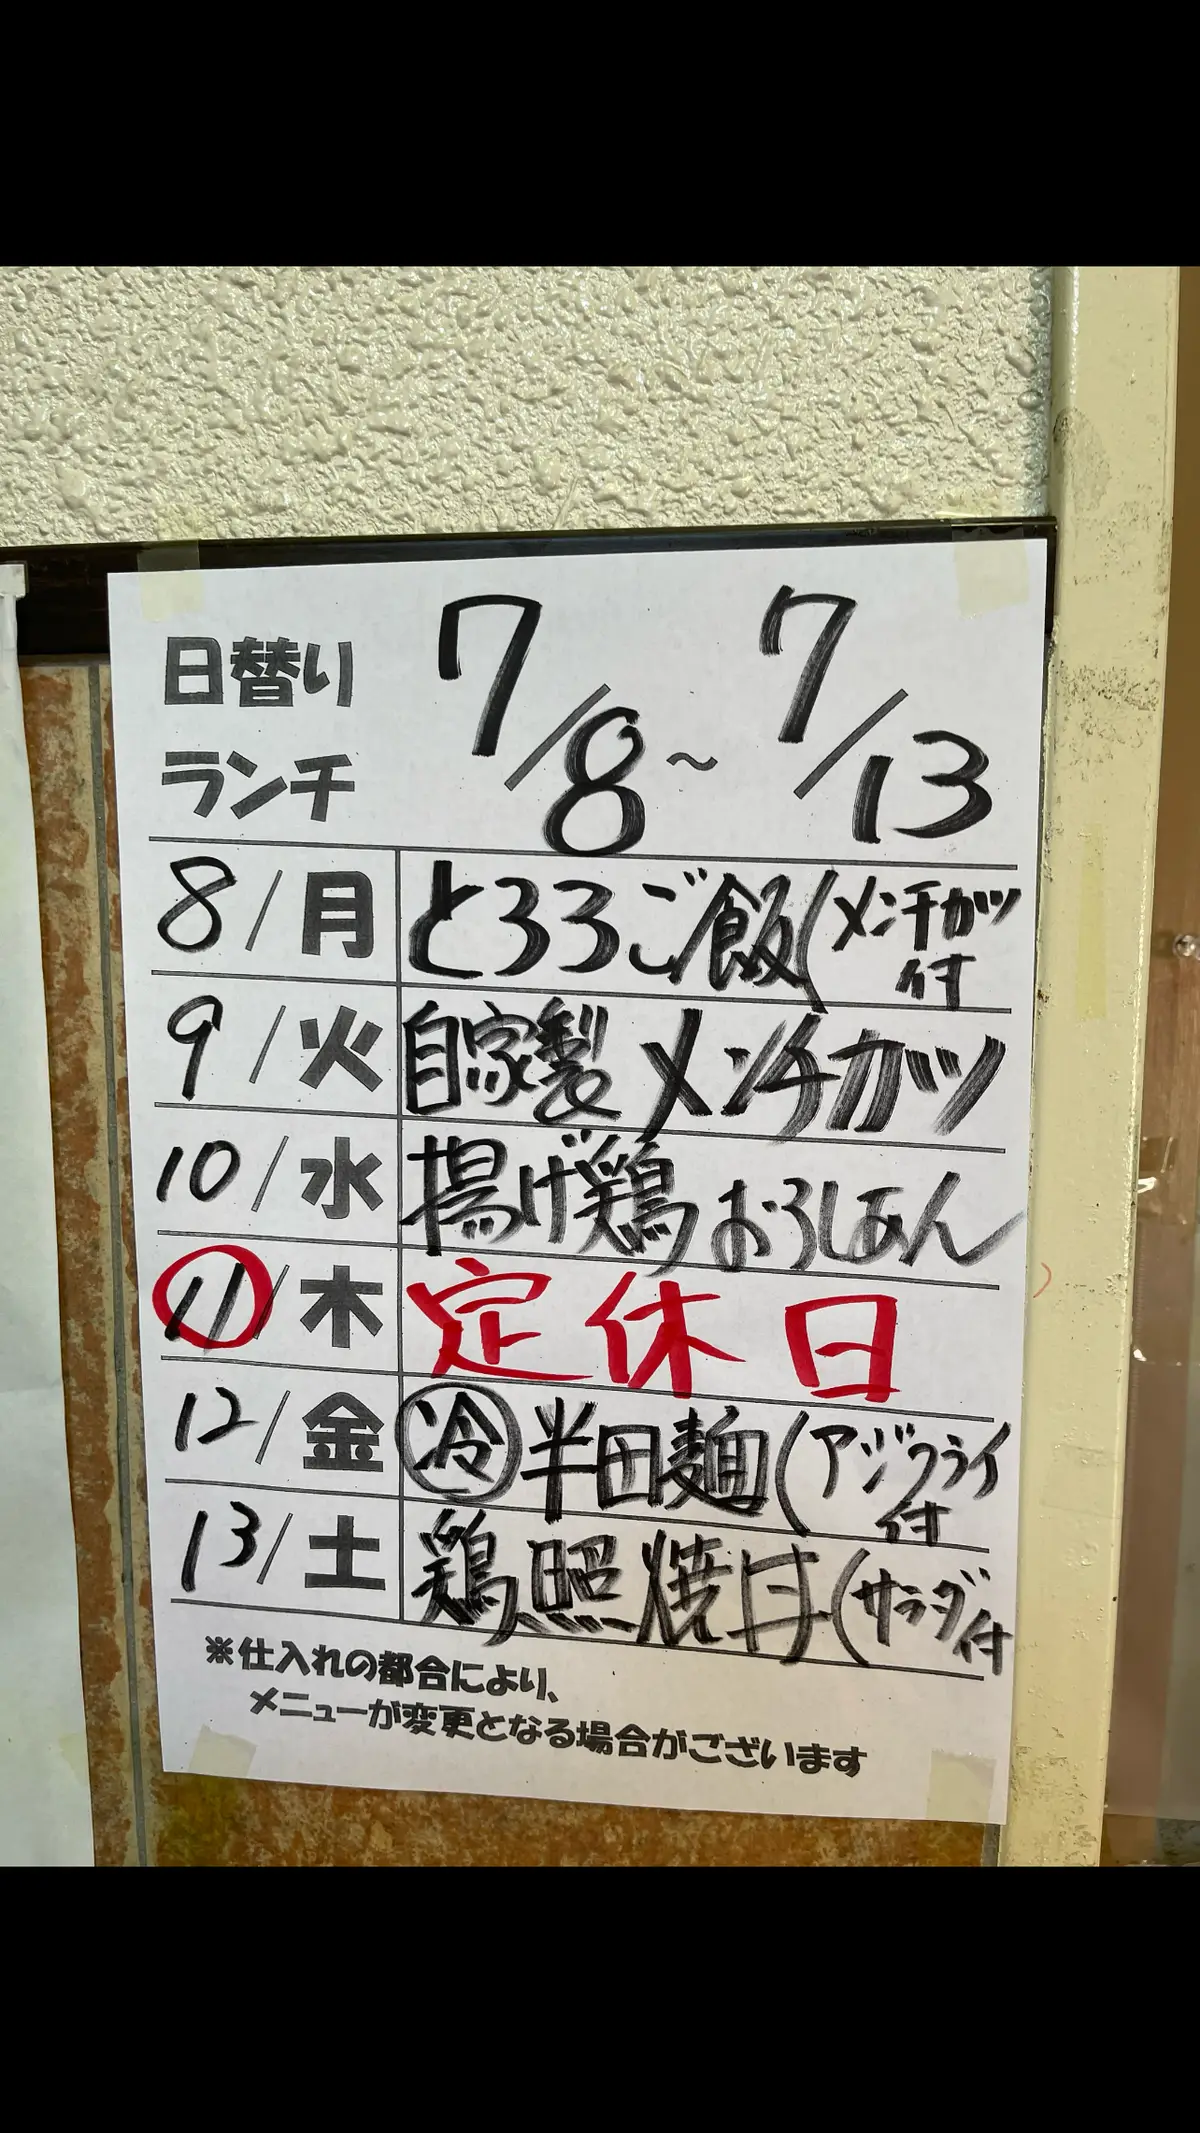 日替り
ランチ
7/8~7/13
8/月 とろろご飯(メンチカツ付
9/火 自家製メンチカツ
10/水 揚げ鶏おろしあん
11/木 定休日
12/金 冷半田麺(アジフライ付
13/土 鶏照焼丼(サラダ付
※仕入れの都合により、
メニューが変更となる場合がございます